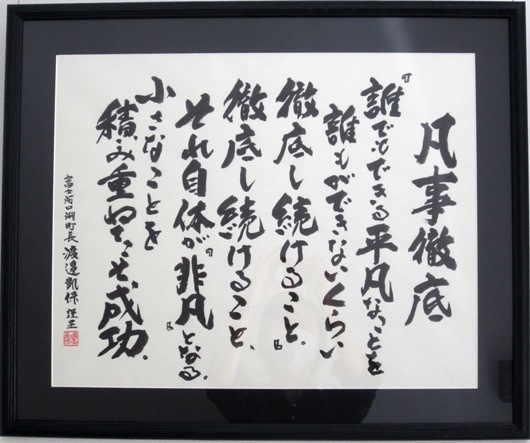 凡事徹底
『誰でもできる平凡なことを
誰もができないくらい
徹底し続けること。』
徹底し続けること、
それ自体が『非凡』となる。
小さなことを
積み重ねてこそ成功。
富士河口湖町長 渡邉凱保